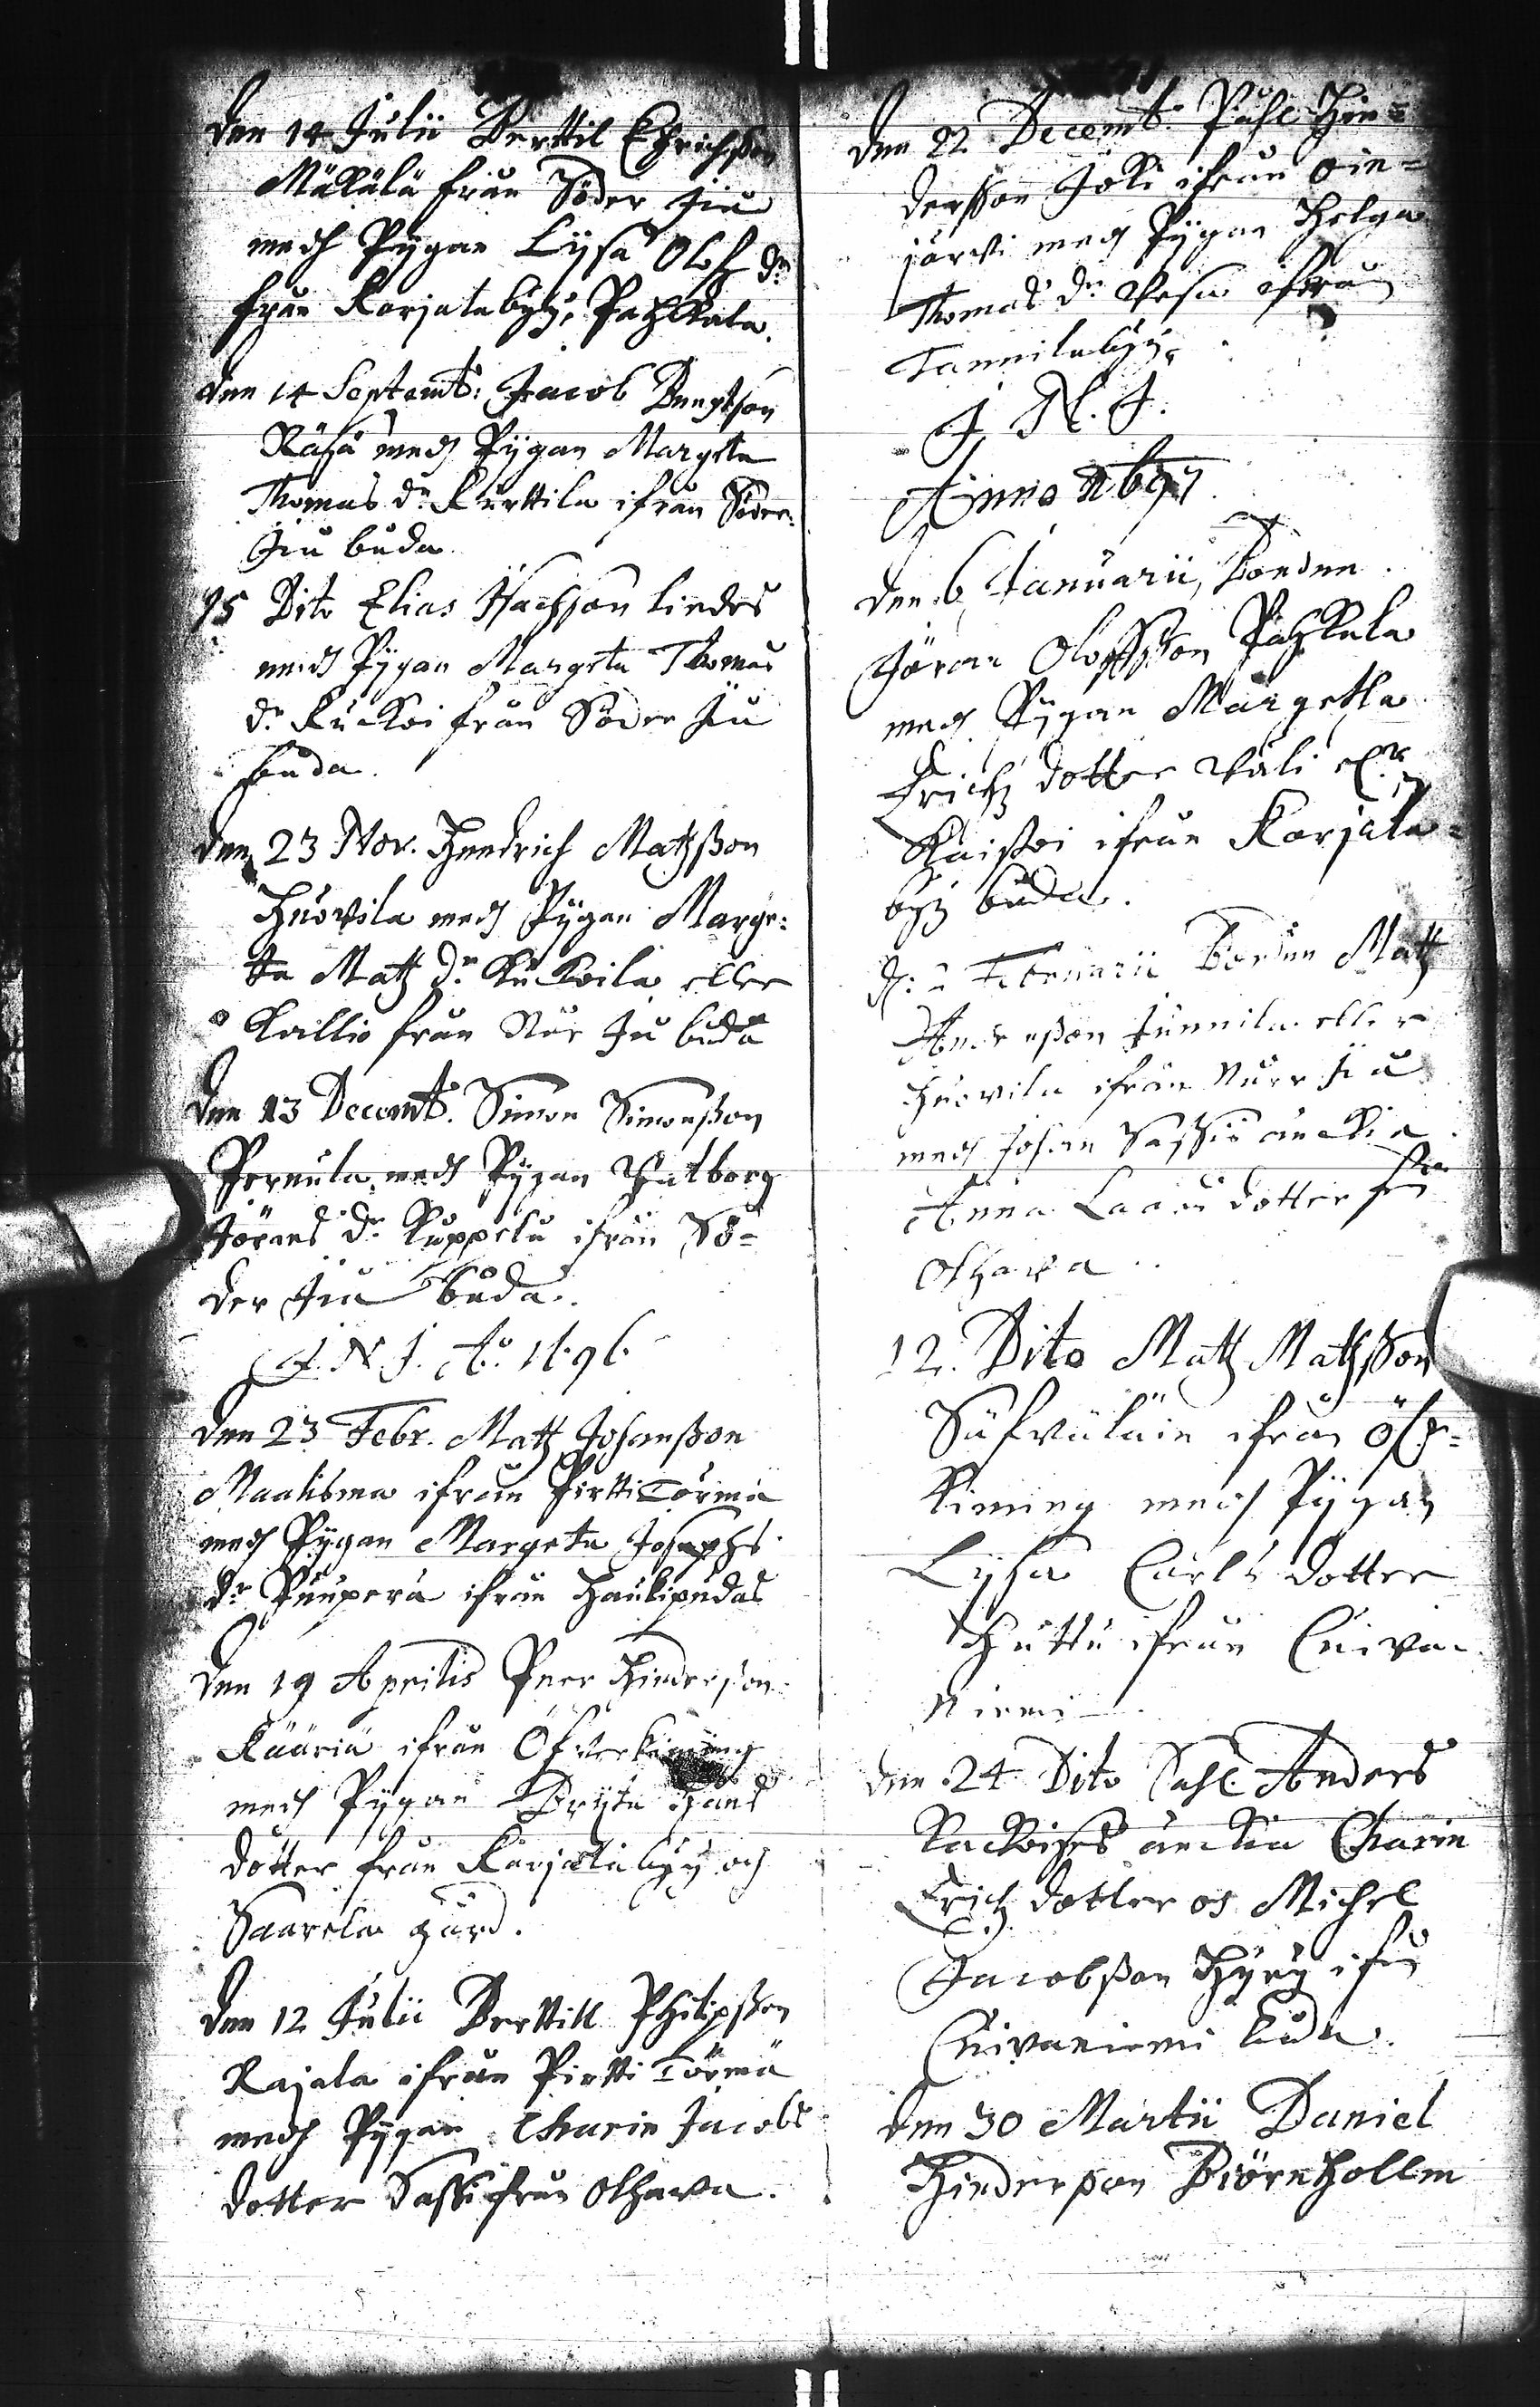 Den 14 Julii Berttil Ehrichsson
Mäkälä från Söder Iju
medh Pygan Lysa Olofz dr
från Karjalaby, Pahkala.
Den 14 Septemb: Jacob Bengtson
Räsä med Pygan Margeta
Thomas dr Kurttila ifrån Söder
Iju buda
15 Dito Elias Isachson Liedes
medh Pygan Margeta Thomas
dr Kuckoi från Söder Iju
buda.
Den 23 Nov. Hendrich Matzßon
Huovila med Pygan Marge:
ta Matz dr Kuckoila eller
Kallio från Nör Iju buda
Den 13 Decemb. Simon Simonßon
Pernula med Pygan Walborg
Jörans dr Kuppelu ifrån Sö=
der Iju buda.
J. N. J. Ao. 1696.
Den 23 Febr. Matz Johanßon
Maalisma ifrån Pirttitörmä
med Pygan Margeta Josephs
dr Puuperä ifrån Haukipudas
Den 19 Aprilis Peer Hinderson
Kääriä ifrån Öfverkiming
medh Pygan Bryta Hans
dotter från Karjalaby och
Saarela gård.
Den 12 Julii Berttill Philipßon
Rajala ifrån Pirtti Törmä
medh Pygan Charin Jacobs
dotter Sassi från Olhava.
Den 22 Decemb. Påhl Hin=
dersson Joki ifrån Oin=
järvi med Pygan Helga
Thomas dr Vesa ifrån
Tannilaby.
J. N. J.
Anno 1697
Den 6 Januarii, Bonden
Jöran Olofsson Pahkala
med Pygan Margetha
Erichz dotter Väli elr
Kaisßoi ifrån Karjala=
by buda.
d: 2 Februarii Bonden Matz
Andersßon Junnila eller
Huovila ifrån Nörr Iju
med Johan Sassis änckia
Anna Lars dotter från
Olhava.
12. Dito Matz Matzßon
Säfvälain ifrån Öfr=
Kiming medh Pygan
Lysa Carls dotter
Huttu ifrån Cuiva
Niemi
den 24 Dito Sahl. Anders
Kackoises änckia Charin
Erichz dotter oh Michel
Jacobßon Hyry ifrån
Cuivaniemi buda.
Den 30 Martii Daniel
Hinderßon Biörnhollm